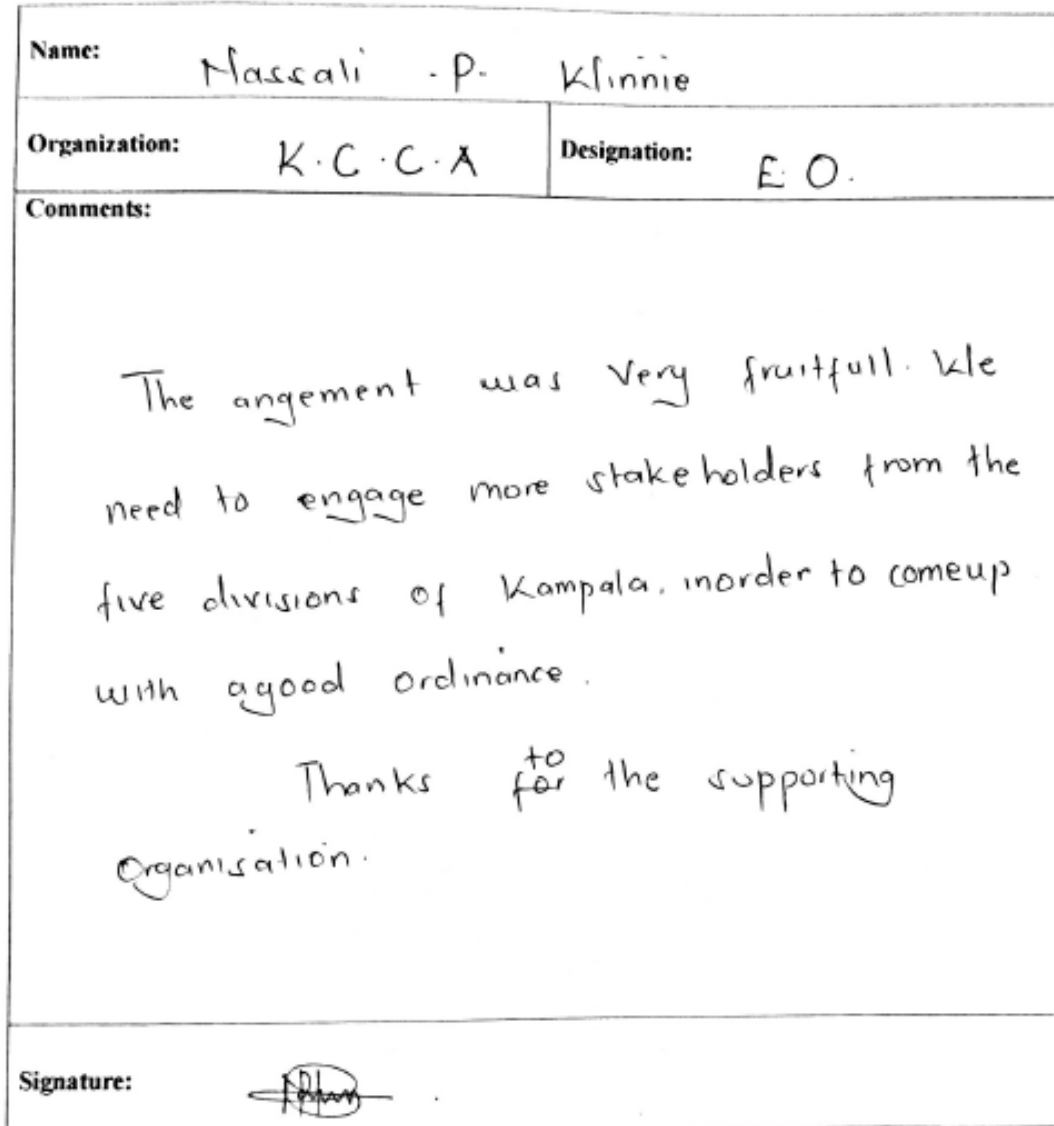 Name: Nassali .P. Klinnie
Organization: K.C.C.A Designation: E.O.
Comments:
The angement was very fruitfull. We
need to engage more stakeholders from the
five divisions of Kampala. inorder to comeup
with agood ordinance.
Thanks for to the supporting
Organisation.
Signature: